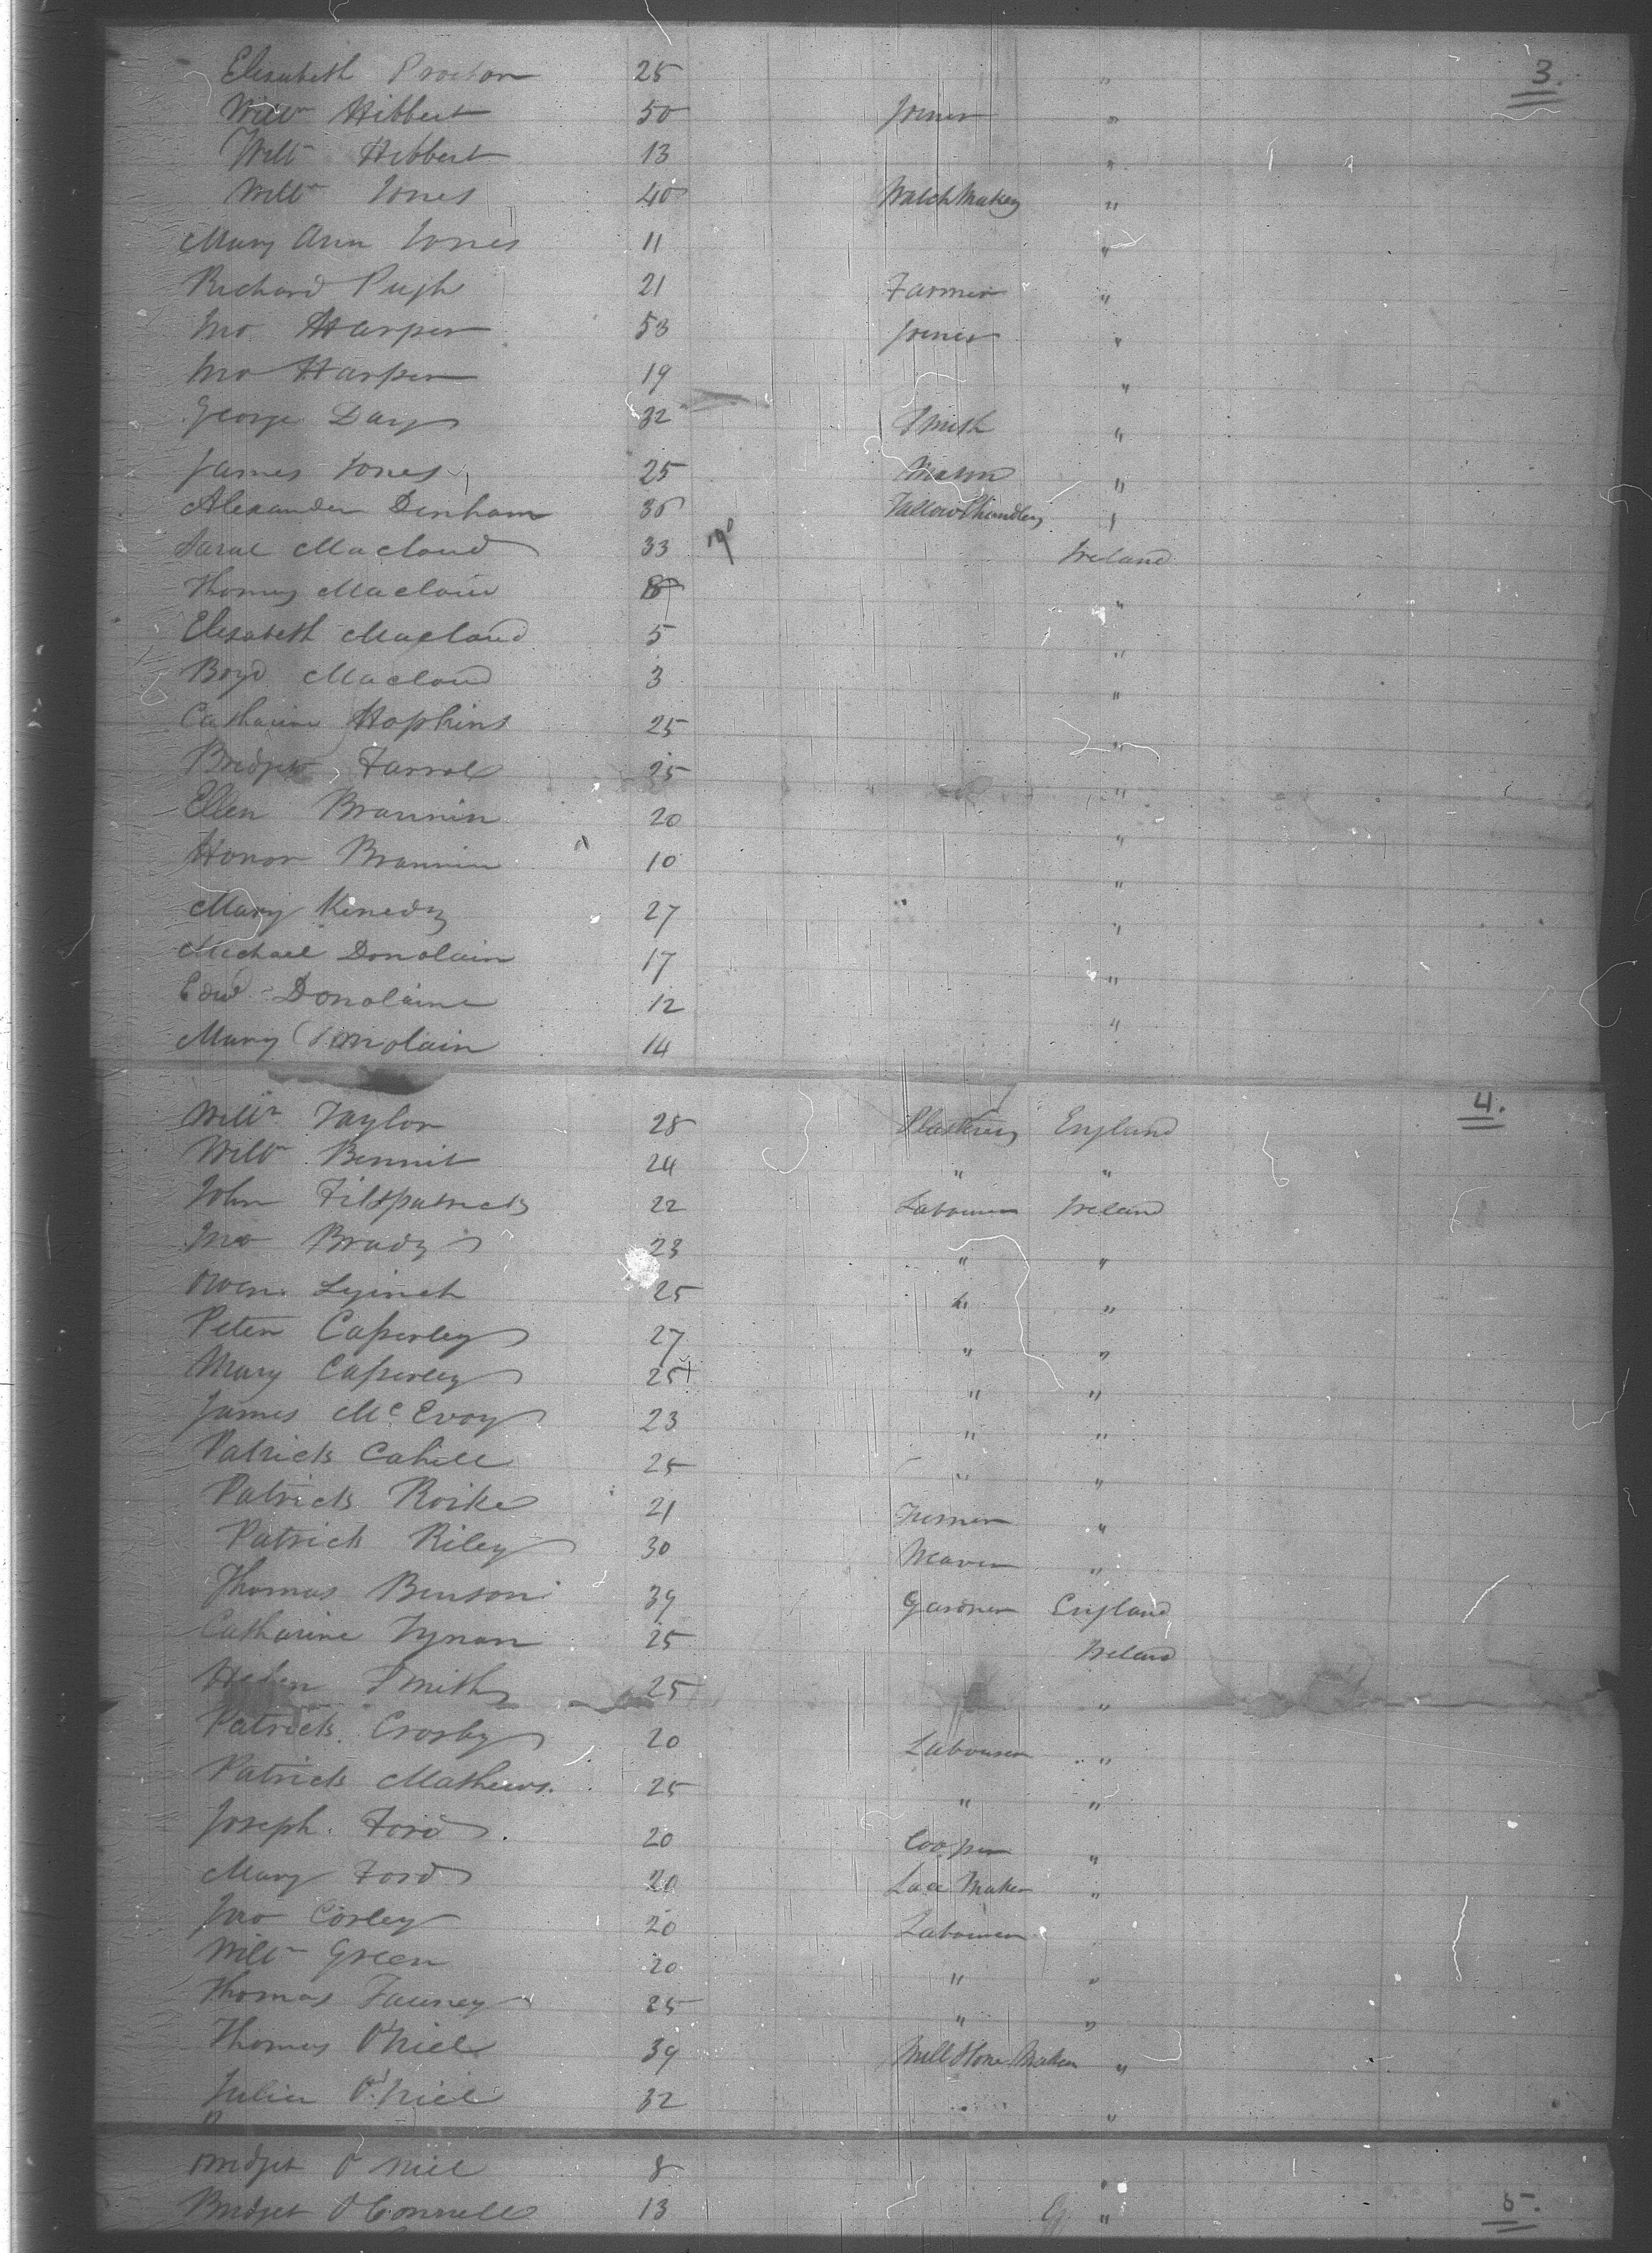 Elizabeth Procton 25 " 3.
Willm Hibbert 50 Joiner "
Willm Hibbert 13 "
Willm Jones 40 Watch Maker "
Mary Ann Jones 11 "
Richard Pugh 21 Farmer "
Jno Harper 53 Joiner "
Jno Harper 19 "
George Day 32 Smith "
James Jones 25 Mason "
Alexander Denham 36 Tallow Chandler "
Sarah Macloud 33 Ireland
Thomas "
Elizabeth Macloud 5 "
Boyd Macloud 3 "
Catharine Hopkins 25 "
Bridget Farrol 25 "
Ellen Brannin 20 "
Honor Brannin 10 "
Mary Kenedy 27 "
Michael Donolain 17 "
Edwd Donolaine 12 "
Mary Donolain 14
Willm Taylor 28 Plasterer England 4.
Willm Bennit 24 " "
John Fitzpatrick 22 Labourer Ireland
Jno Brady 23 " "
Owen Lyinch 25 " "
Peter Caperley 27 " "
Mary Caperley 25 " "
James McEvoy 23 " "
Patrick Cahill 25 " "
Patrick Roike 21 Turner "
Patrick Riley 30 Weaver "
Thomas Benson 39 Gardner England
Catharine Tynan 25 Ireland
Helen Smith 25 "
Patrick Crosby 20 Labourer "
Patrick Mathews. 25 " "
Joseph Ford 20 Cooper "
Mary Ford 20 Lace Maker "
Jno Corley 20 Labourer
Willm Green 20 " "
Thomas 25 " "
Thomas O'Niel 39 Mill Stone Maker "
Julia O'Niel 32 "
Bridget O Niel 8 "
Bridget O Connell 13 " 5.